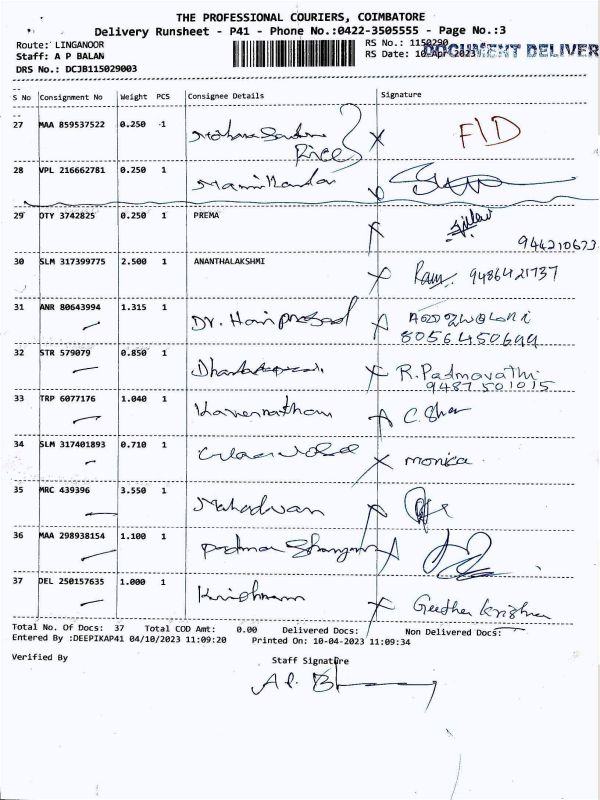 THE PROFESSIONAL COURIERS, COIMBATORE
Delivery Runsheet - P41 - Phone No.:0422-3505555 - Page No.:3
Route: LINGANOOR RS No.: 1150290
Staff: A P BALAN RS Date: 10-Apr-2023 DOCUMENT DELIVER
DRS No.: DCJB115029003
S No Consignment No Weight PCS Consignee Details Signature
27 MAA 859537522 0.250 1 Rice F/D
28 VPL 216662781 0.250 1
29 DTY 3742825 0.250 1 PREMA 944210673
30 SLM 317399775 2.500 1 ANANTHALAKSHMI Ram. 9486421737
31 ANR 80643994 1.315 1 Dr. Hariprasad
8056450699
32 STR 579079 0.850 1 R. Padmavathi
9487501015
33 TRP 6077176 1.040 1 C.
34 SLM 317401893 0.710 1 monica
35 MRC 439396 3.550 1 Mahadevan
36 MAA 298938154 1.100 1 Padma
37 DEL 250157635 1.000 1 Krishnan Geetha Krishna
Total No. Of Docs: 37 Total COD Amt: 0.00 Delivered Docs: Non Delivered Docs:
Entered By :DEEPIKAP41 04/10/2023 11:09:20 Printed On: 10-04-2023 11:09:34
Verified By Staff Signature
A P. B